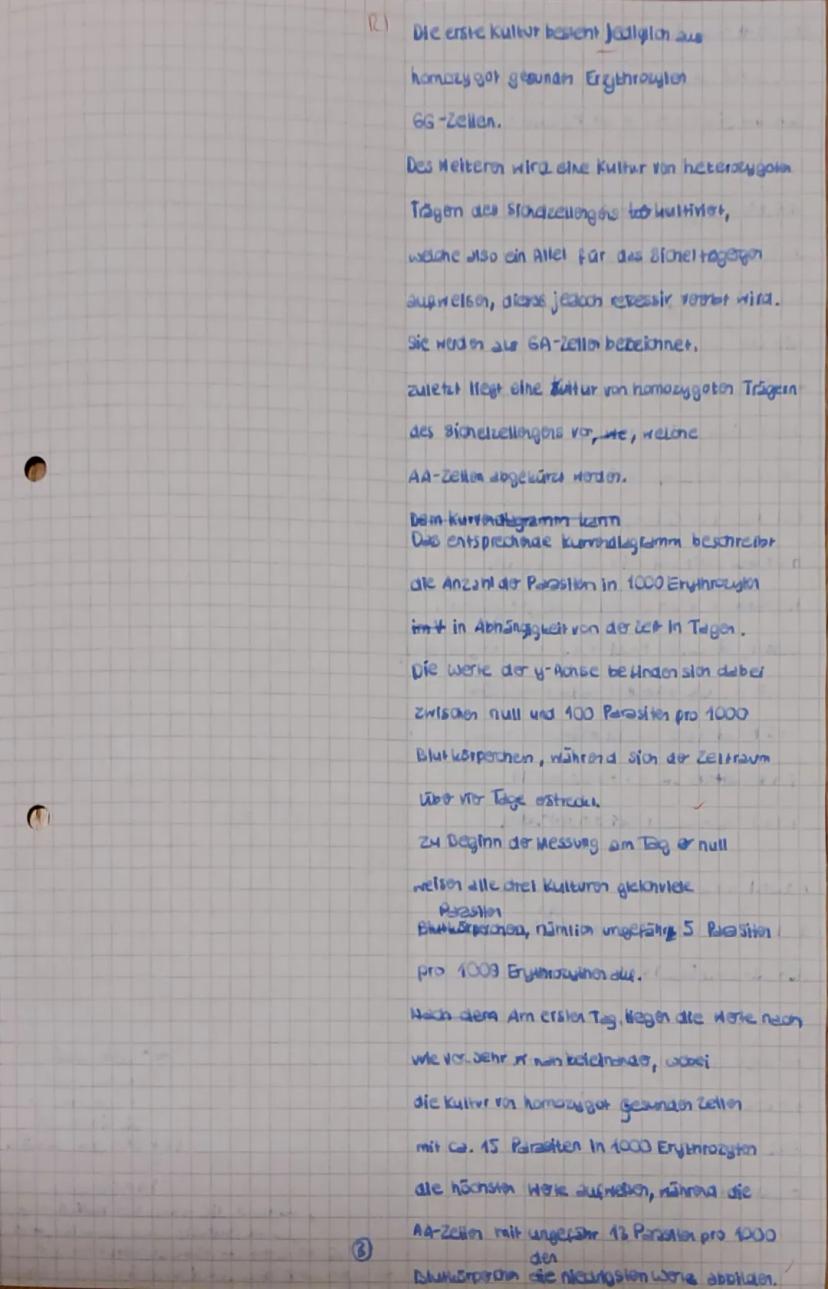 R)
Die erste Kultur besteht jediglich aus
homozygot gesunden Erythrozyten
GG-Zellen.
Des Weiteren wird eine Kultur von heterozygoten
Trägen des Sichelzellengens kultiviert,
welche also ein Allel für das Sichel
aufweisen, dieses jedoch rezessiv vererbt wird.
Sie werden als GA-Zellen bezeichnet.
zuletzt liegt eine Kultur von homozygoten Trägern
des Sichelzellengens vor, welche
AA-Zellen abgekürzt werden.
Dem Kurvendiagramm kann
Das entsprechende Kurvendiagramm beschreibt
die Anzahl der Parasiten in 1000 Erythrozyten
in Abhängigkeit von der Zeit in Tagen.
Die Werte der y-Achse befinden sich dabei
zwischen null und 100 Parasiten pro 1000
Blutkörperchen, während sich der Zeitraum
über vier Tage erstreckt.
Zu Beginn der Messung am Tag null
weisen alle drei Kulturen gleichviele
Parasiten
Blutkörperchen, nämlich ungefähr 5 Parasiten
pro 1000 auf.
Nach dem Am ersten Tag, liegen die Werte nach
wie vor sehr beieinander, wobei
die Kultur von homozygot gesunden Zellen
mit ca. 15 Parasiten in 1000 Erythrozyten
die höchsten Werte aufweisen, während die
AA-Zellen mit ungefähr 13 Parasiten pro 1000
den
Blutkörperchen die niedrigsten Werte abbilden.
3